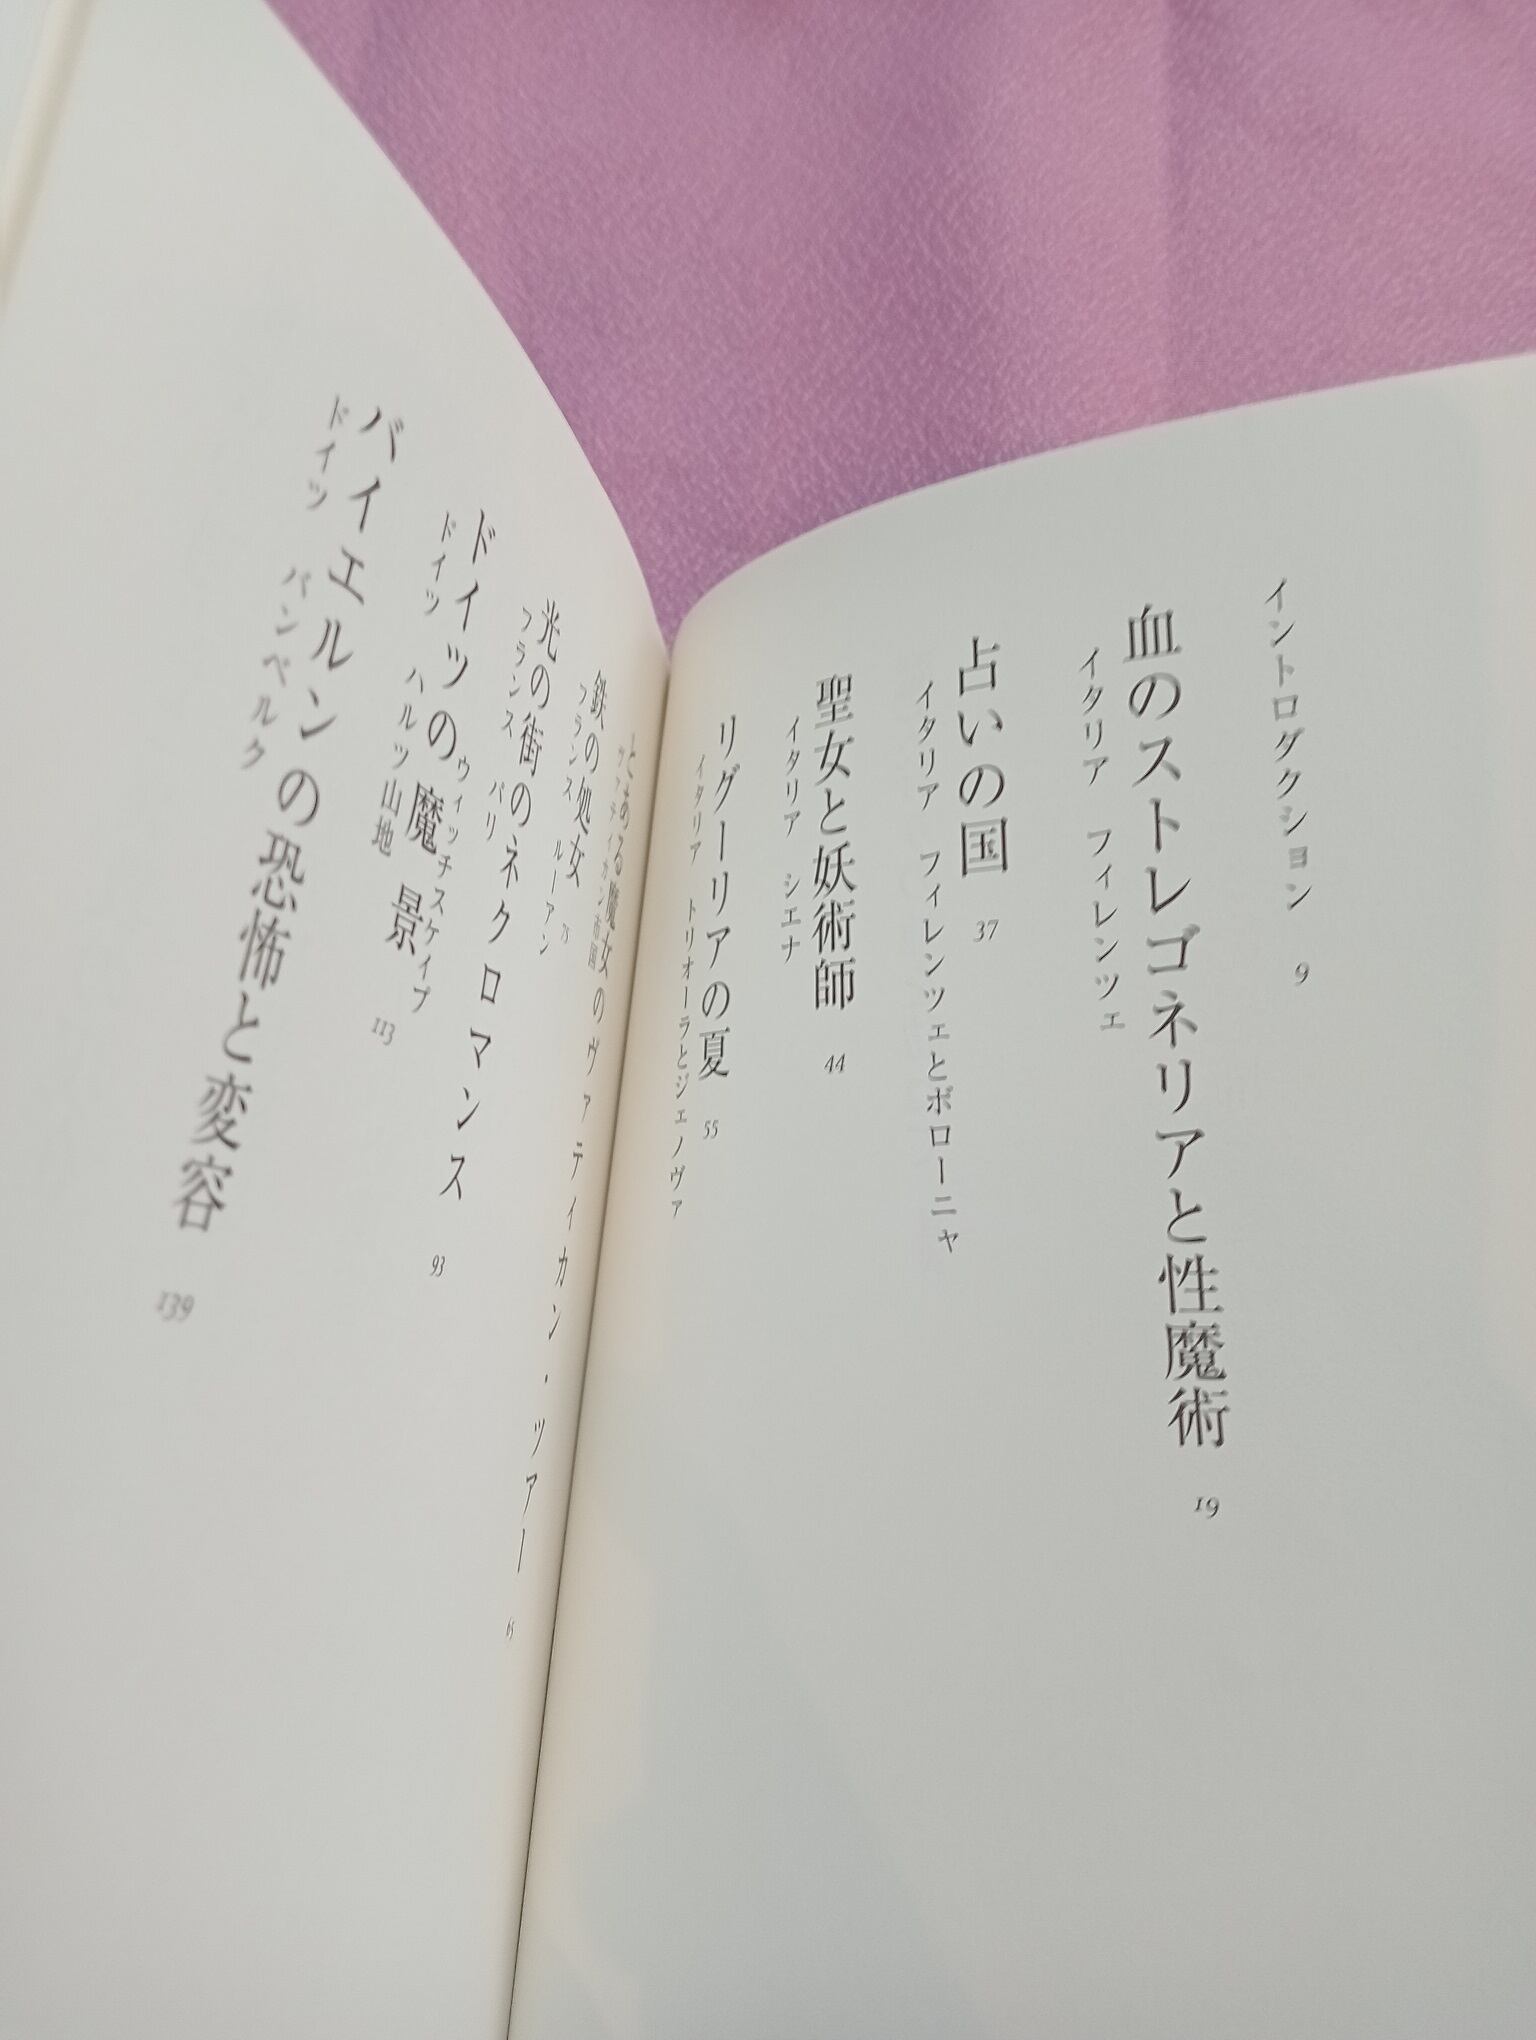 イントロダクション 9
血のストレゴネリアと性魔術 19
イタリア フィレンツェ
占いの国 37
イタリア フィレンツェとボローニャ
聖女と妖術師 44
イタリア シエナ
リグーリアの夏 55
イタリア トリオーラとジェノヴァ
とある魔女のヴァティカン・ツアー 65
ヴァティカン帝国
鉄の処女 75
フランス ルーアン
光の街のネクロマンス 93
フランス パリ
ドイツの魔景 113
ウィッチスケイプ
ドイツ ハルツ山地
バイエルンの恐怖と変容 139
ドイツ バンベルク